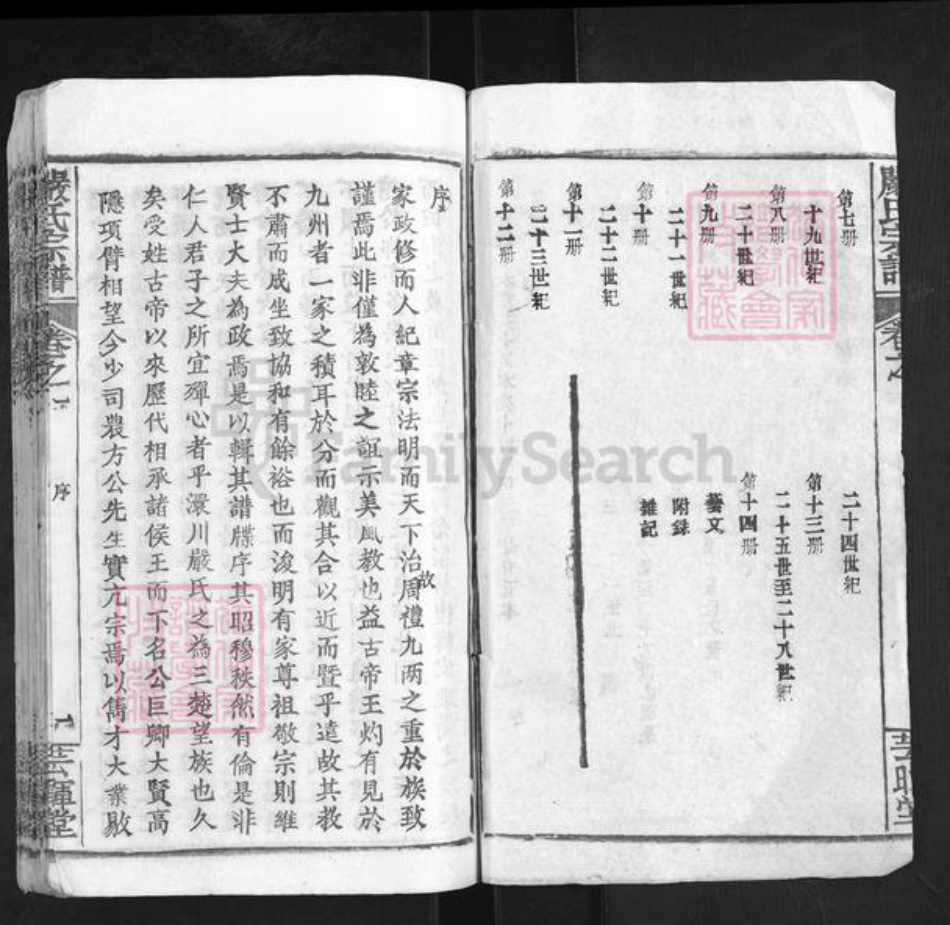 嚴氏宗譜
卷之
第七册
十九世紀
第八册
二十世紀
第九册
二十一世紀
第十册
二十二世紀
第十一册
二十三世紀
第十二册
二十四世紀
第十三册
二十五世至二十八世紀
第十四册
藝文
附錄
雜記
序
家政修而人紀章宗法明而天下治故周禮九兩之重於族致
謹焉此非僅為敦睦之誼示美風教也益古帝王灼有見於
九州者一家之積耳於分而觀其合以近而暨乎遠故其教
不肅而成坐致協和有餘裕也而浚明有家尊祖敬宗則維
賢士大夫為政焉是以輯其譜牒序其昭穆秩然有倫是非
仁人君子之所宜殫心者乎澴川嚴氏之為三楚望族也久
矣受姓古帝以來歷代相承諸侯王而下名公巨卿大賢高
隱項臂相望今少司農方公先生實亢宗焉以雋才大業敭
嚴氏宗譜
卷之一
序
FamilySearch